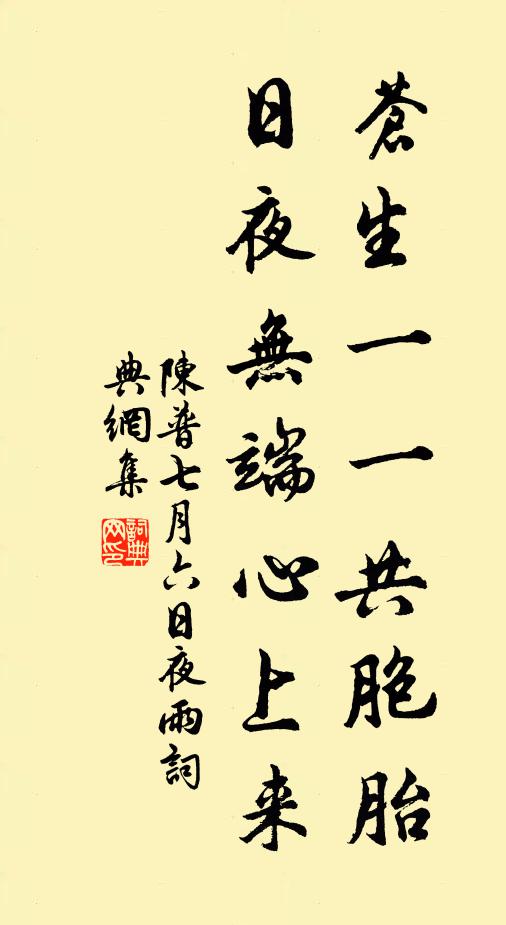 蒼生一一共胞胎
日夜無端心上来
陳普七月六日夜雨詞
典網集
詞典網印